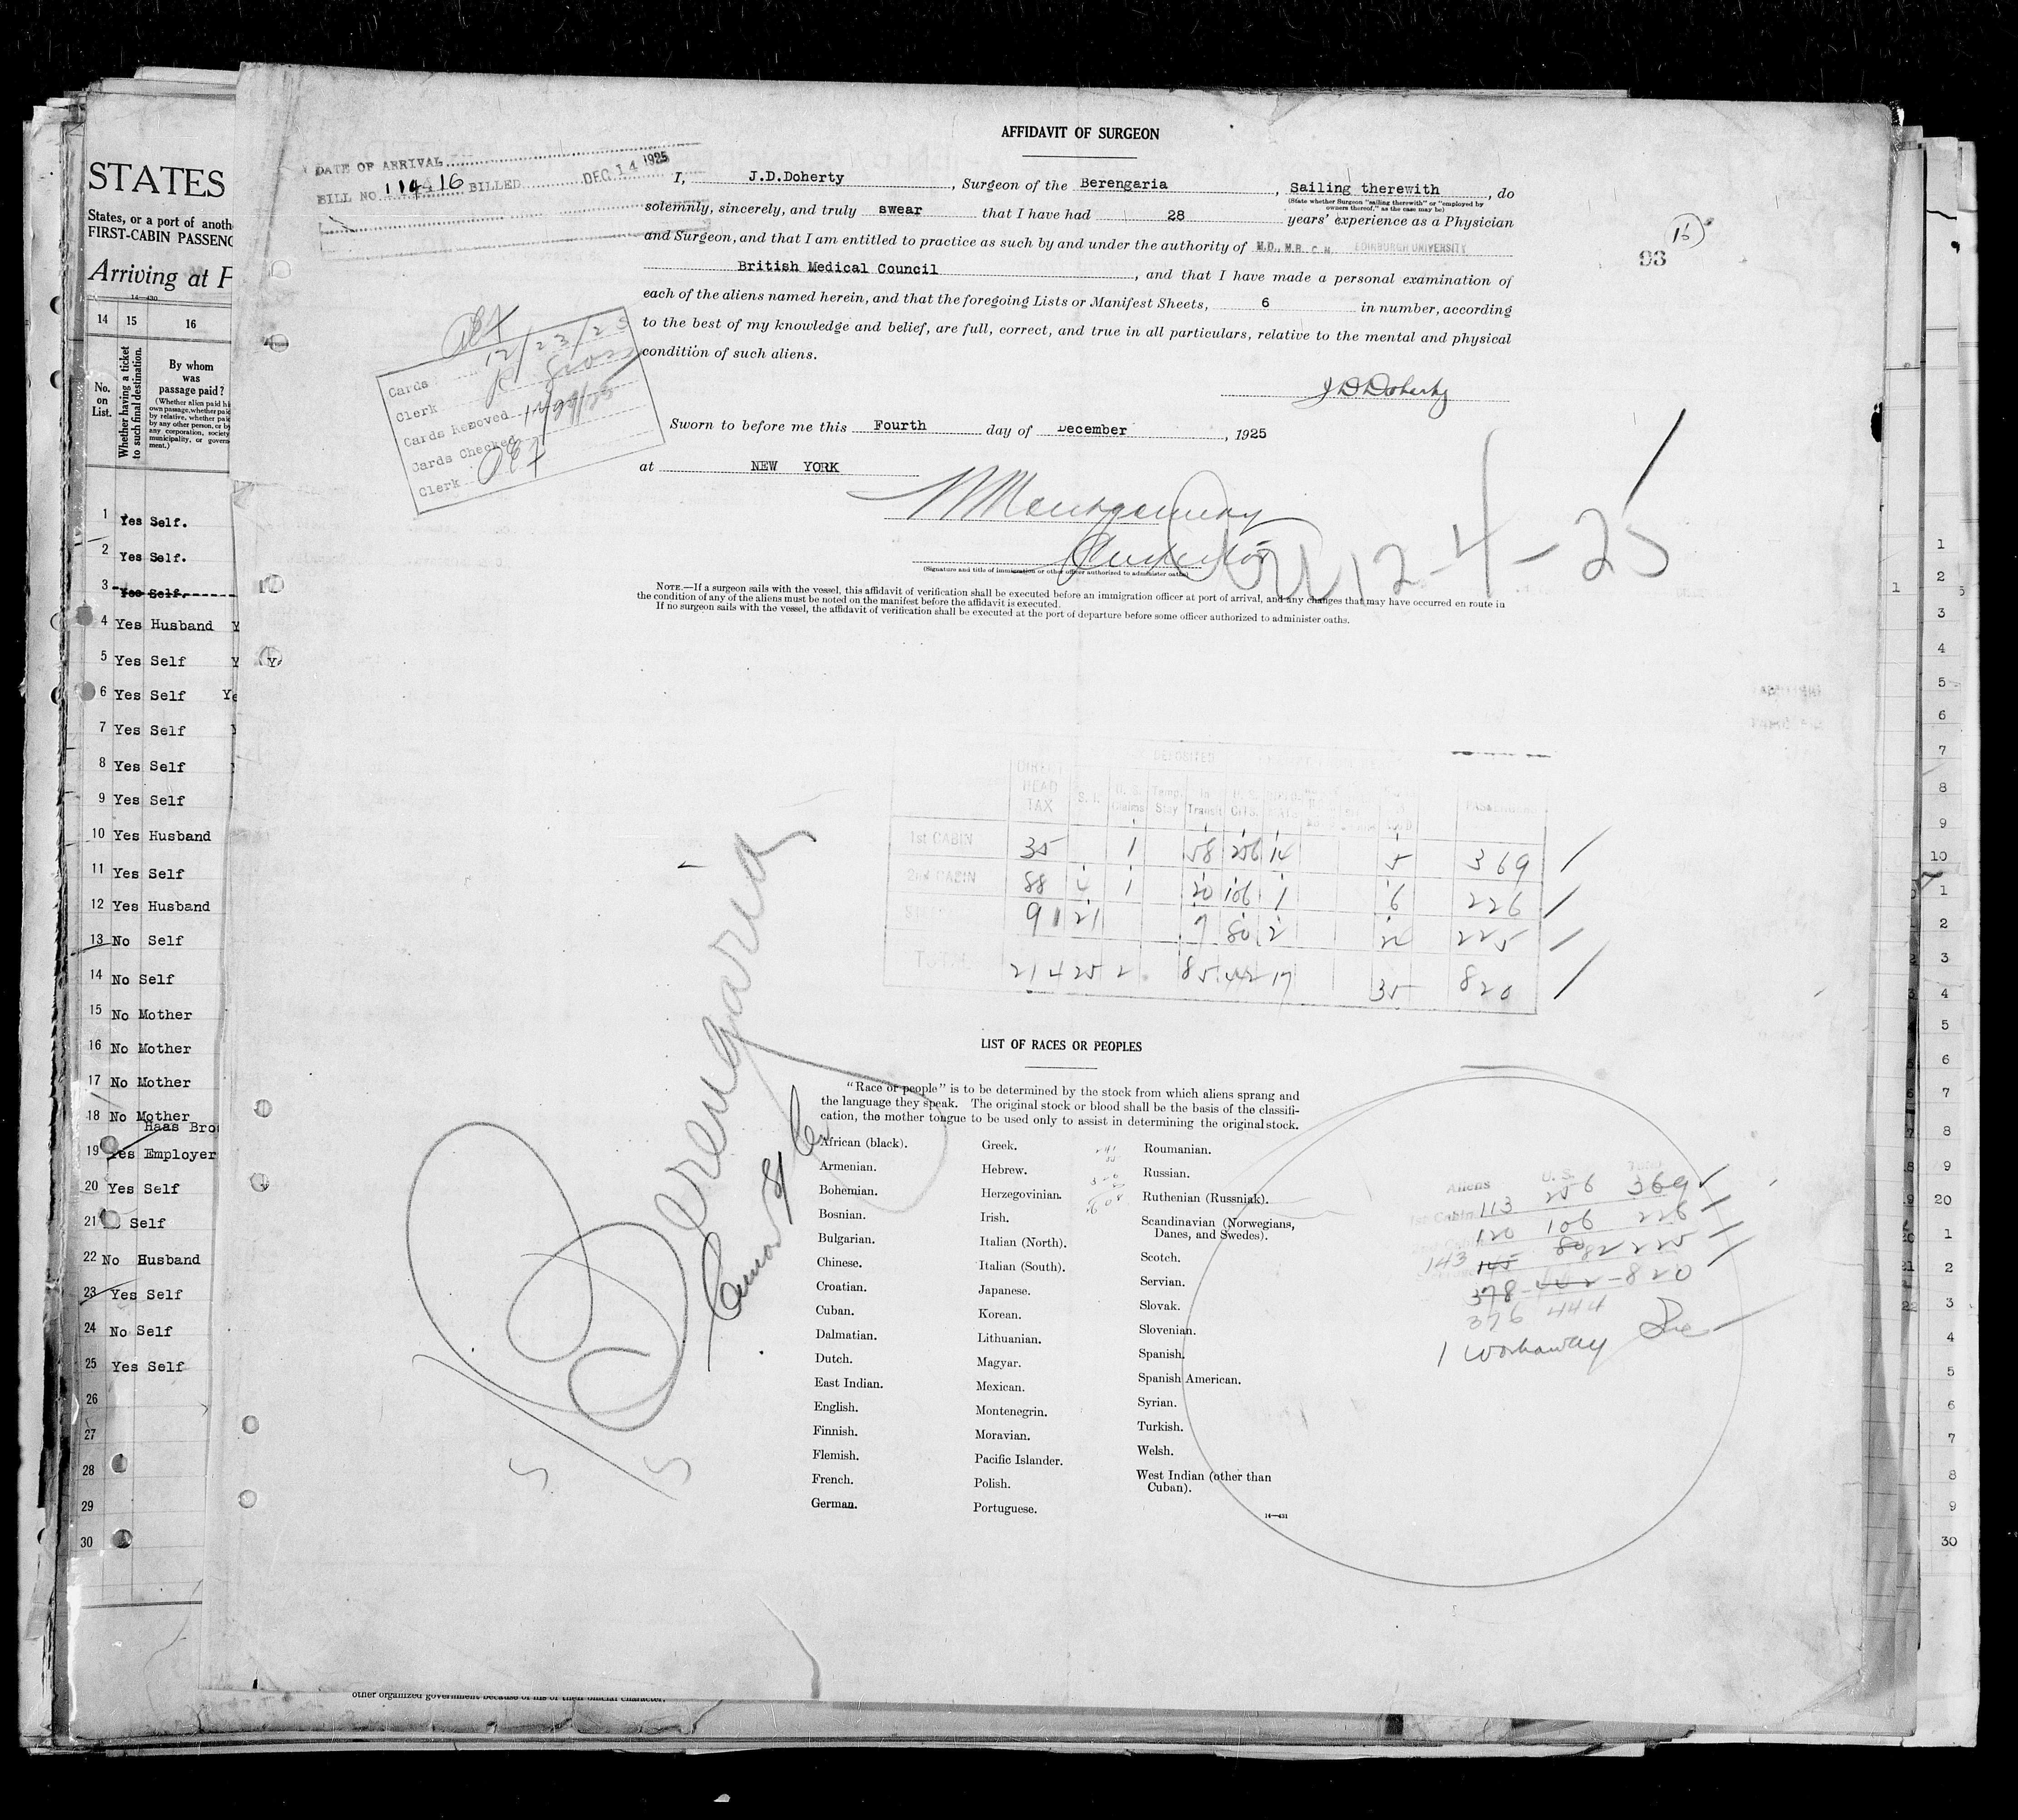 AFFIDAVIT OF SURGEON
DATE OF ARRIVAL
BILL NO. 114416 BILLED DEC 14 1925
I, J.D.Doherty, Surgeon of the Berengaria, Sailing therewith, do
(State whether Surgeon "sailing therewith" or "employed by owners thereof," as the case may be)
solemnly, sincerely, and truly swear that I have had 28 years' experience as a Physician
and Surgeon, and that I am entitled to practice as such by and under the authority of M.D., M.B. C.M. EDINBURGH UNIVERSITY
British Medical Council, and that I have made a personal examination of
each of the aliens named herein, and that the foregoing Lists or Manifest Sheets, 6 in number, according
to the best of my knowledge and belief, are full, correct, and true in all particulars, relative to the mental and physical
condition of such aliens.
93
15
J D Doherty
Sworn to before me this Fourth day of December, 1925
at NEW YORK
Cards 12/23/25
Clerk
Cards Removed
Cards Checked
Clerk
W Montgomery
Inspector
12-4-25
(Signature and title of immigration or other officer authorized to administer oaths)
NOTE.—If a surgeon sails with the vessel, this affidavit of verification shall be executed before an immigration officer at port of arrival, and any changes that may have occurred en route in
the condition of any of the aliens must be noted on the manifest before the affidavit is executed.
If no surgeon sails with the vessel, the affidavit of verification shall be executed at the port of departure before some officer authorized to administer oaths.
DEPOSITED
DIRECT HEAD TAX S. I. U. S. Claims Temp. Stay In Transit U. S. CITS. PASSENGERS
1st CABIN 35 1 58 256 14 5 369
2nd CABIN 88 4 1 20 106 1 6 226
91 21 7 80 2 24 225
TOTAL 214 25 2 85 442 17 35 820
Berengaria
Cunard
LIST OF RACES OR PEOPLES
"Race or people" is to be determined by the stock from which aliens sprang and
the language they speak. The original stock or blood shall be the basis of the classifi-
cation, the mother tongue to be used only to assist in determining the original stock.
African (black).
Armenian.
Bohemian.
Bosnian.
Bulgarian.
Chinese.
Croatian.
Cuban.
Dalmatian.
Dutch.
East Indian.
English.
Finnish.
Flemish.
French.
German.
Greek.
Hebrew.
Herzegovinian.
Irish.
Italian (North).
Italian (South).
Japanese.
Korean.
Lithuanian.
Magyar.
Mexican.
Montenegrin.
Moravian.
Pacific Islander.
Polish.
Portuguese.
Roumanian.
Russian.
Ruthenian (Russniak).
Scandinavian (Norwegians,
Danes, and Swedes).
Scotch.
Servian.
Slovak.
Slovenian.
Spanish.
Spanish American.
Syrian.
Turkish.
Welsh.
West Indian (other than
Cuban).
14—431
Aliens U. S. Total
1st Cabin 113 256 369
120 106 226
143 145 80 82 225
378 - 442 - 820
376 444
1 Workaway
STATES
States, or a port of anoth
FIRST-CABIN PASSENG
Arriving at P
14—430
14 15 16
No. on List.
Whether having a ticket to such final destination.
By whom was passage paid?
1 Yes Self.
2 Yes Self.
3 Yes Self.
4 Yes Husband Y
5 Yes Self Y
6 Yes Self Ye
7 Yes Self
8 Yes Self
9 Yes Self
10 Yes Husband
11 Yes Self
12 Yes Husband
13 No Self
14 No Self
15 No Mother
16 No Mother
17 No Mother
18 No Mother
Haas Bro
19 Yes Employer
20 Yes Self
21 Self
22 No Husband
23 Yes Self
24 No Self
25 Yes Self
26
27
28
29
30
1
2
3
4
5
6
7
8
9
10
1
2
3
4
5
6
7
8
9
20
1
2
3
4
5
6
7
8
9
30
other organized government because of his or their official character.